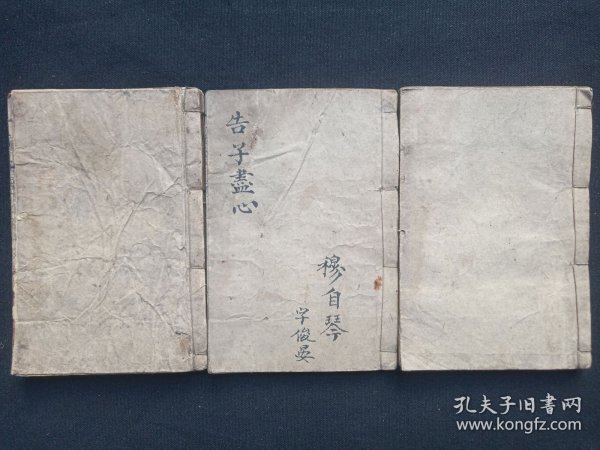 告子盡心
穆自琴
字俊晏
孔夫子旧書网
www.kongfz.com